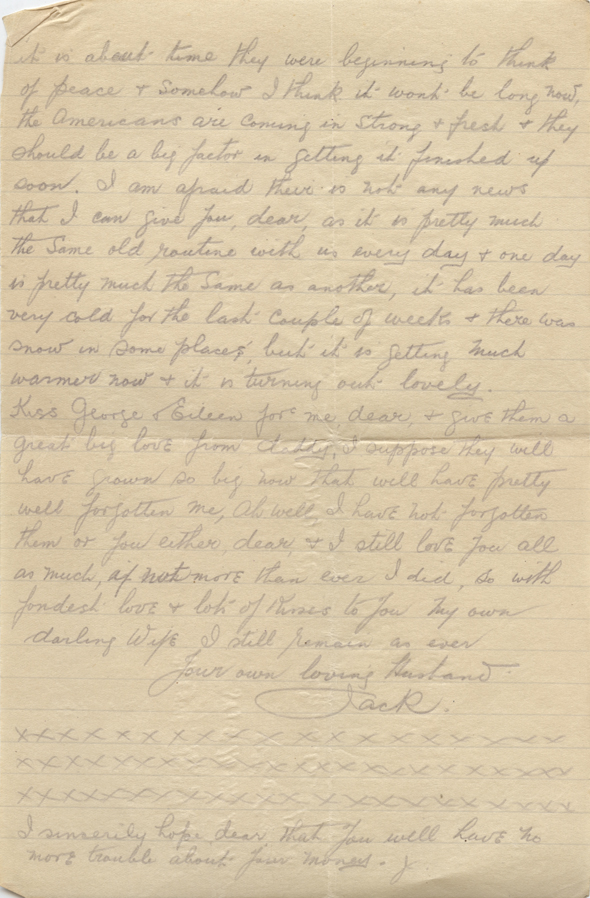 it is about time they were beginning to think
of peace & somehow I think it wont be long now,
the Americans are coming in strong & fresh & they
should be a big factor in getting it finished up
soon. I am afraid there is not any news
that I can give you, dear, as it is pretty much
the same old routine with us every day & one day
is pretty much the same as another, it has been
very cold for the last couple of weeks & there was
snow in some places, but it is getting much
warmer now & it is turning out lovely.
Kiss George & Eileen for me, dear, & give them a
great big love from I suppose they will
have grown so big now that will have pretty
well forgotten me, Ah well I have not forgotten
them or you either, dear, & I still love you all
as much, if not more than ever I did, so with
fondest love & lots of Kisses to you my own
darling Wife I still remain as ever
Your own loving Husband
Jack.
x x x x x x x x x x x x x x x x x
x x x x x x x x x x x x x x x x x x
x x x x x x x x x x x x x x x x x x
I sincerily hope dear that you will have no
more trouble about your money. J